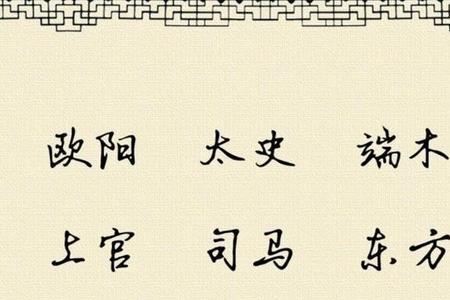 欧阳 太史 端木
上官 司马 东方